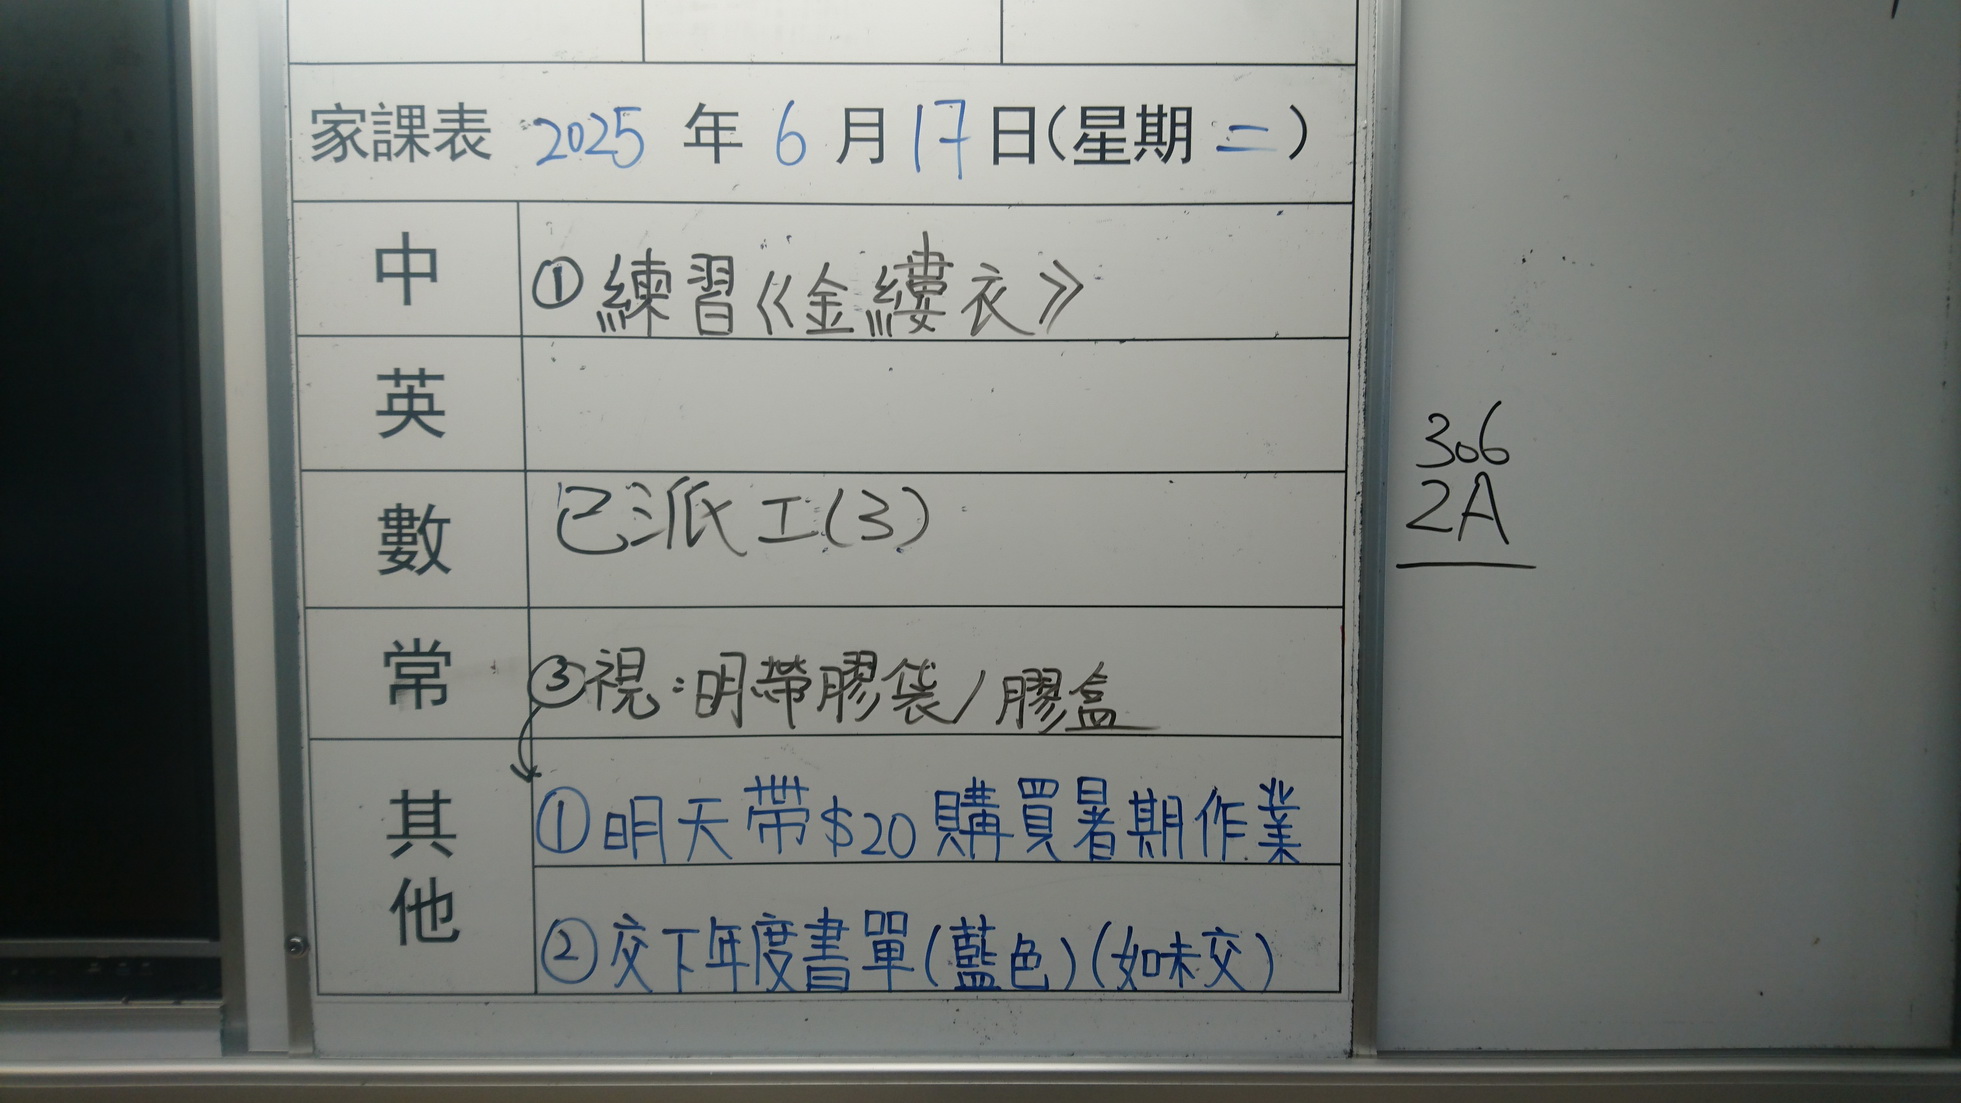 家課表 2025 年 6 月 17 日(星期 二)
中 ①練習《金縷衣》
英
數 已派工(3)
常 ③視:明帶膠袋/膠盒
其他 ①明天帶$20購買暑期作業
②交下年度書單(藍色)(如未交)
306
2A